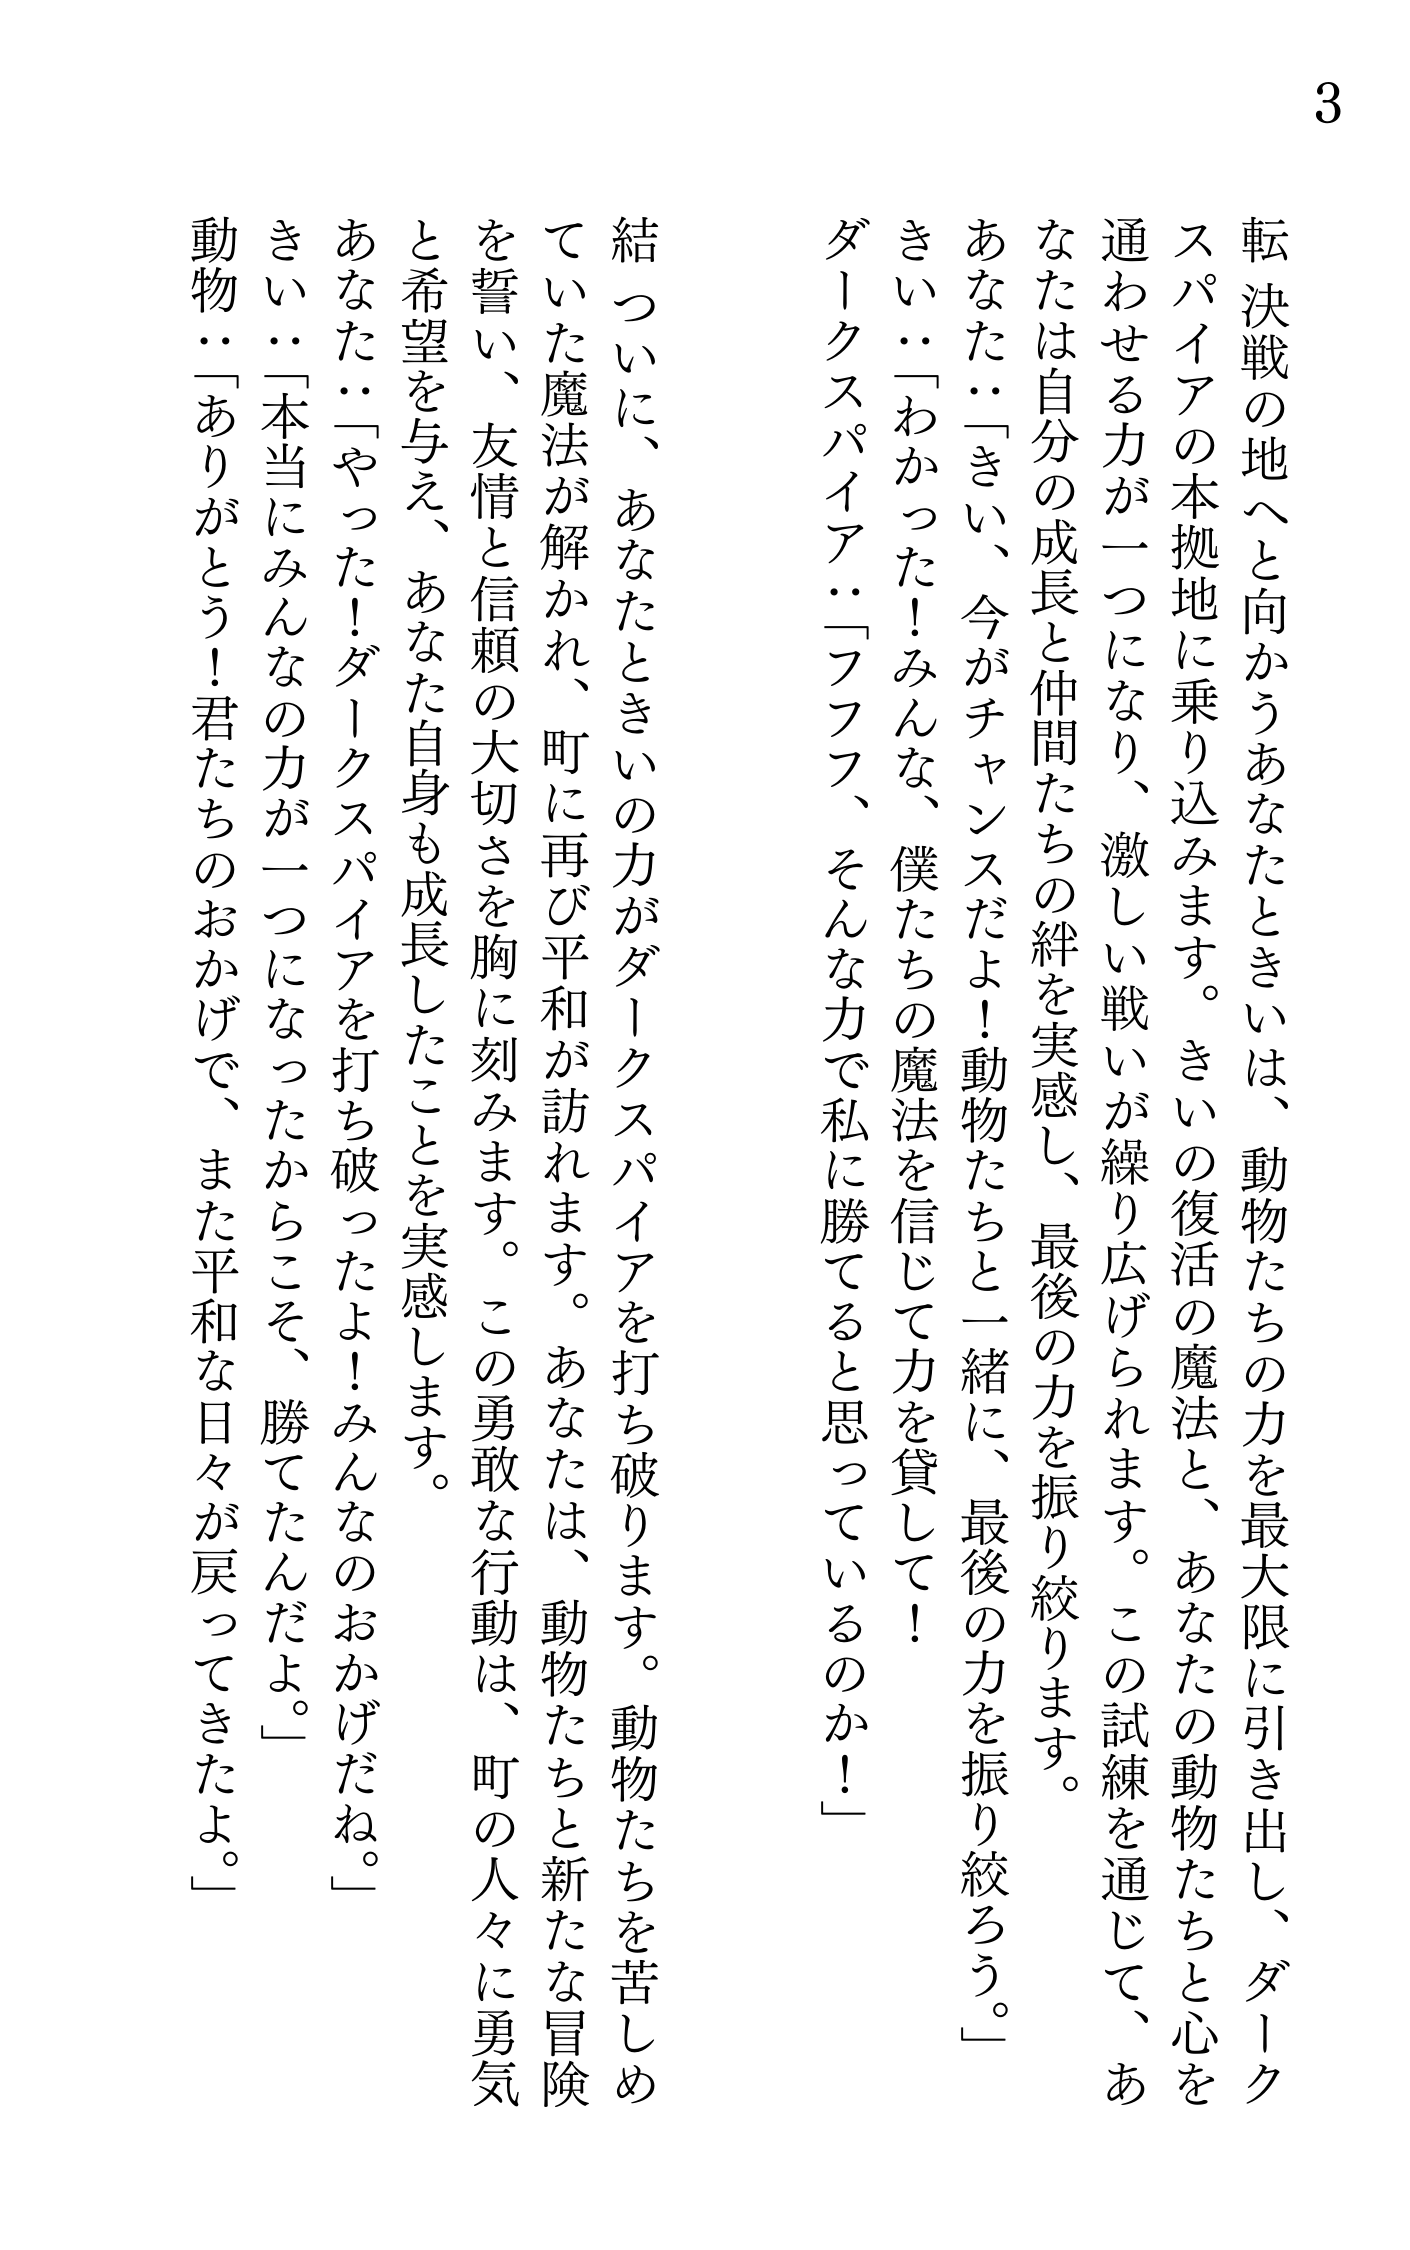 3
転 決戦の地へと向かうあなたときいは、動物たちの力を最大限に引き出し、ダーク
スパイアの本拠地に乗り込みます。きいの復活の魔法と、あなたの動物たちと心を
通わせる力が一つになり、激しい戦いが繰り広げられます。この試練を通じて、あ
なたは自分の成長と仲間たちの絆を実感し、最後の力を振り絞ります。
あなた：「きい、今がチャンスだよ！動物たちと一緒に、最後の力を振り絞ろう。」
きい：「わかった！みんな、僕たちの魔法を信じて力を貸して！
ダークスパイア：「フフフ、そんな力で私に勝てると思っているのか！」
結 ついに、あなたときいの力がダークスパイアを打ち破ります。動物たちを苦しめ
ていた魔法が解かれ、町に再び平和が訪れます。あなたは、動物たちと新たな冒険
を誓い、友情と信頼の大切さを胸に刻みます。この勇敢な行動は、町の人々に勇気
と希望を与え、あなた自身も成長したことを実感します。
あなた：「やった！ダークスパイアを打ち破ったよ！みんなのおかげだね。」
きい：「本当にみんなの力が一つになったからこそ、勝てたんだよ。」
動物：「ありがとう！君たちのおかげで、また平和な日々が戻ってきたよ。」